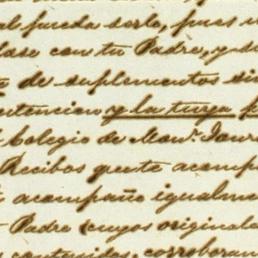 al pueda serlo, pues
dase con tu Padre, y
de suplementos
y la tuya
Colegio de Monr. Jour
Recibos que te acomp
acompaño igualme
Padre (cuyos originale
contenidos, corroboran